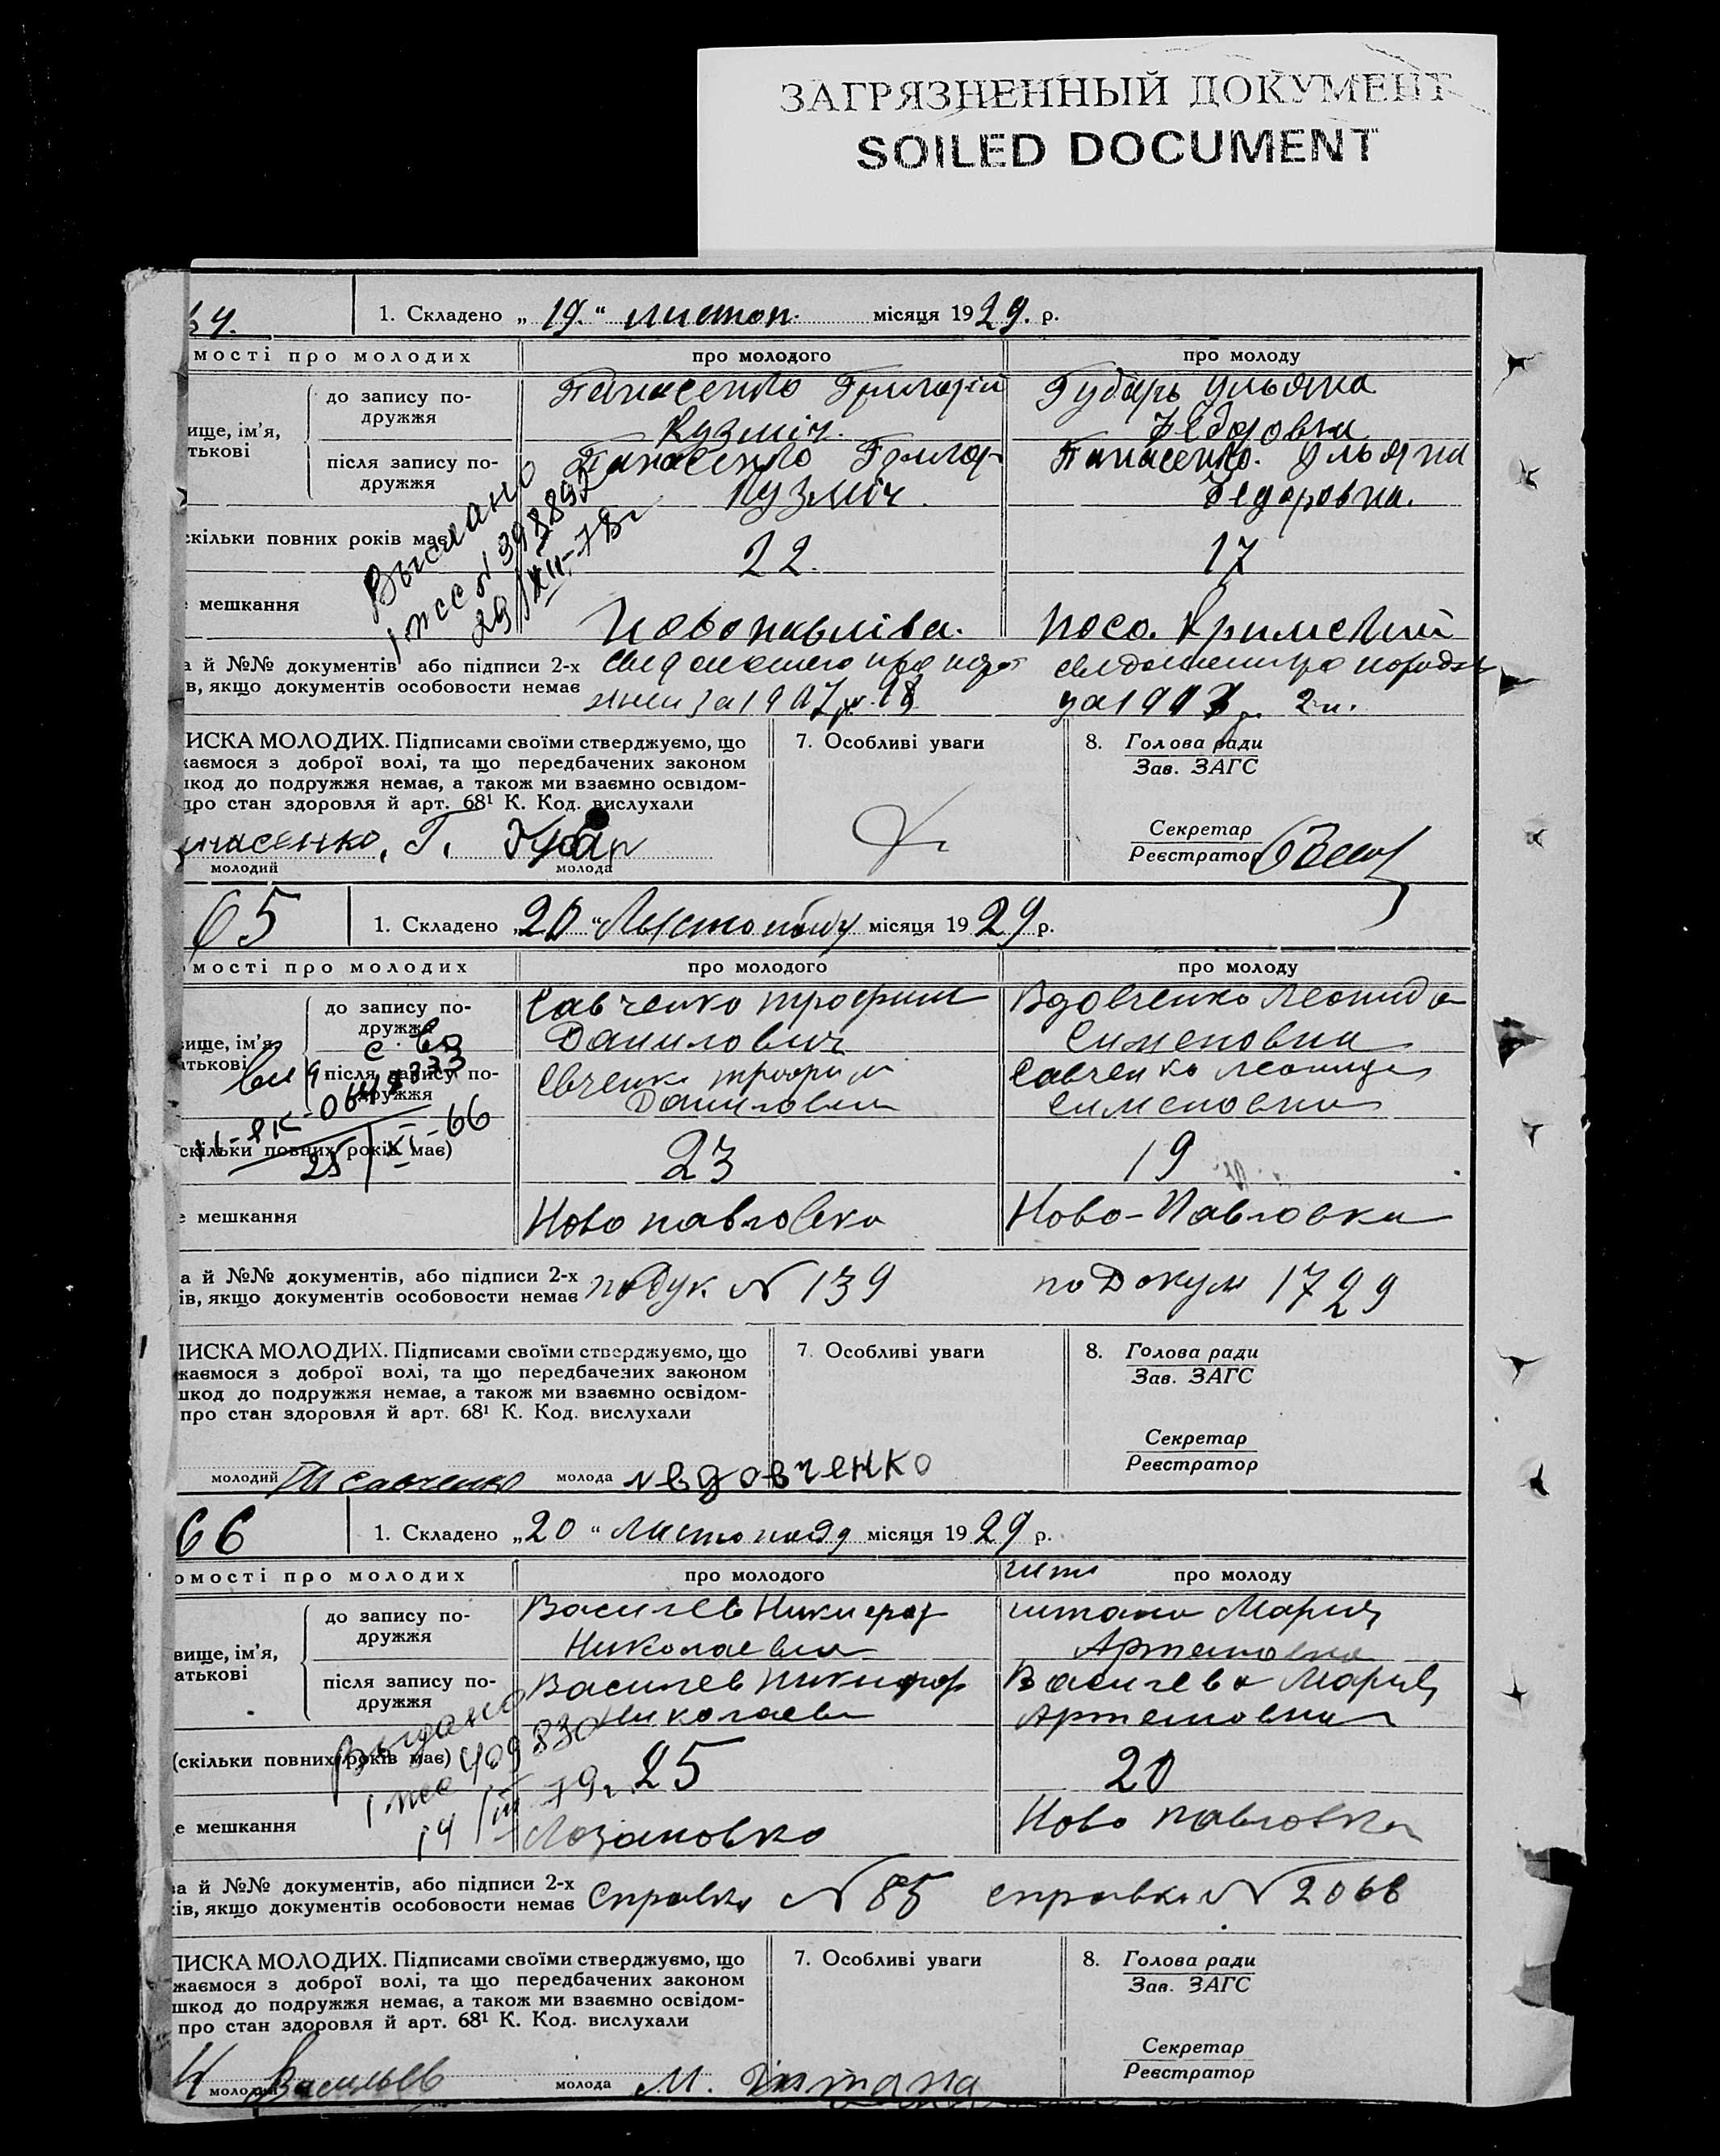 ЗАГРЯЗНЕННЫЙ ДОКУМЕНТ
SOILED DOCUMENT
64. 1. Складено „ 19. “ листоп. місяця 1929. р.
мості про молодих про молодого про молоду
ище, ім'я,
тькові
до запису по-
дружжя
Панасенко Григорій
Кузміч.
Губарь Ульяна
Федоровна
після запису по-
дружжя
Панасенко Григор
Кузміч.
Панасенко. Ульяна
Федоровна.
Выслано
398897
29/XII-78г
скільки повних років має 22. 17
е мешкання Новопавлівка. посо. Кримский
а й №№ документів або підписи 2-х
в, якщо документів особовости немає
за 1907 р. 18
за 190 р. 2 н.
ИСКА МОЛОДИХ. Підписами своїми стверджуємо, що
каємося з доброї волі, та що передбачених законом
шкод до подружжя немає, а також ми взаємно освідом-
про стан здоровля й арт. 68¹ К. Код. вислухали
7. Особливі уваги
8. Голова ради
Зав. ЗАГС
Секретар
Реєстратор
насенко, Г.
молодий молода
65 1. Складено „20 “ Листопаду місяця 1929 р.
омості про молодих про молодого про молоду
вище, ім'я
атькові
до запису по-
дружжя
Савченко Трофим
Данилович
Вдовченко Леонида
Сименовна
після запису по-
дружжя
Євченко Трофим
Данилович
Савченко Леонида
Сименовна
25/XI-66
скільки повних років має) 23 19
е мешкання Новопавловка Ново-Павловка
а й №№ документів, або підписи 2-х
ів, якщо документів особовости немає
по дук. N 139 по докум 1729
ПИСКА МОЛОДИХ. Підписами своїми стверджуємо, що
жаємося з доброї волі, та що передбачених законом
шкод до подружжя немає, а також ми взаємно освідом-
про стан здоровля й арт. 68¹ К. Код. вислухали
7. Особливі уваги
8. Голова ради
Зав. ЗАГС
Секретар
Реєстратор
молодий Савченко молода Лвдовченко
66 1. Складено „20 “ Листопада місяця 1929 р.
омості про молодих про молодого про молоду
вище, ім'я,
атькові
до запису по-
дружжя
Василев Никифор
Николаевич
Штана Мария
Артемовна
після запису по-
дружжя
Василев Никифор
Николаевич
Василева Мария
Артемовна
Выдано
409830
14/III 79г.
(скільки повних років має) 25 20
е мешкання Лозановка Ново павловка
ва й №№ документів, або підписи 2-х
ків, якщо документів особовости немає
Справка N 85 справка N 2068
ПИСКА МОЛОДИХ. Підписами своїми стверджуємо, що
жаємося з доброї волі, та що передбачених законом
шкод до подружжя немає, а також ми взаємно освідом-
про стан здоровля й арт. 68¹ К. Код. вислухали
7. Особливі уваги
8. Голова ради
Зав. ЗАГС
Секретар
Реєстратор
Н Васильев
молодий молода М. Штана